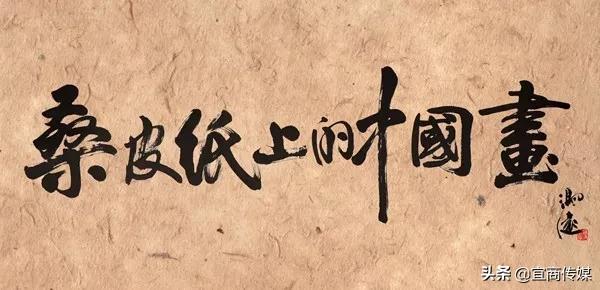 桑皮纸上的中國畫
头条 @宜商传媒